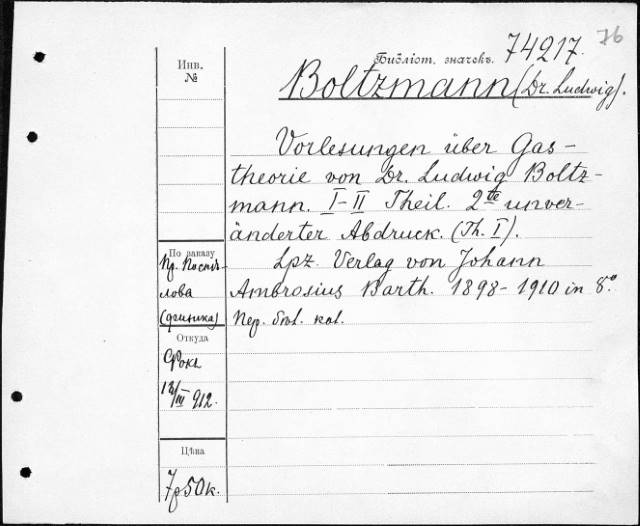 76
Библіот. значекъ. 74217.
Инв.
№
Boltzmann (Dr. Ludwig).
Vorlesungen über Gas-
theorie von Dr. Ludwig Boltz-
mann. I-II Theil. 2te unver-
änderter Abdruck. (Th. I).
Lpz. Verlag von Johann
Ambrosius Barth. 1898-1910 in 8.°
Пер. библ. кол.
По заказу
Пр. Поспѣ-
лова
(физика)
Откуда
Фокк
13/III 912.
Цѣна
7р50к.